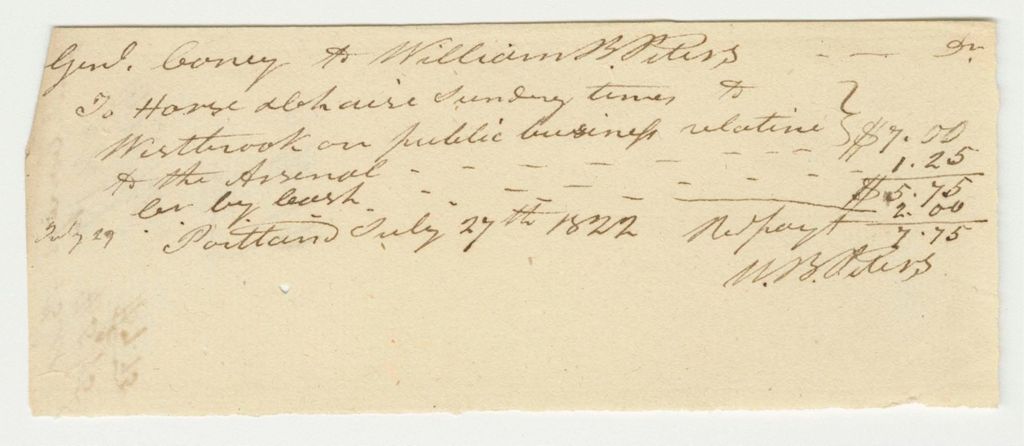 Genl. Coney to William B. Peters - - Dr.
To Horse & Chaise Sundery times to
Westbrook on public business relative } $7.00
to the Arsenal - - - - - - - - 1.25
Cr by Cash - - - - $5.75
July 29 2.00
Portland July 27th 1822 Recd payt 7.75
W. B. Peters